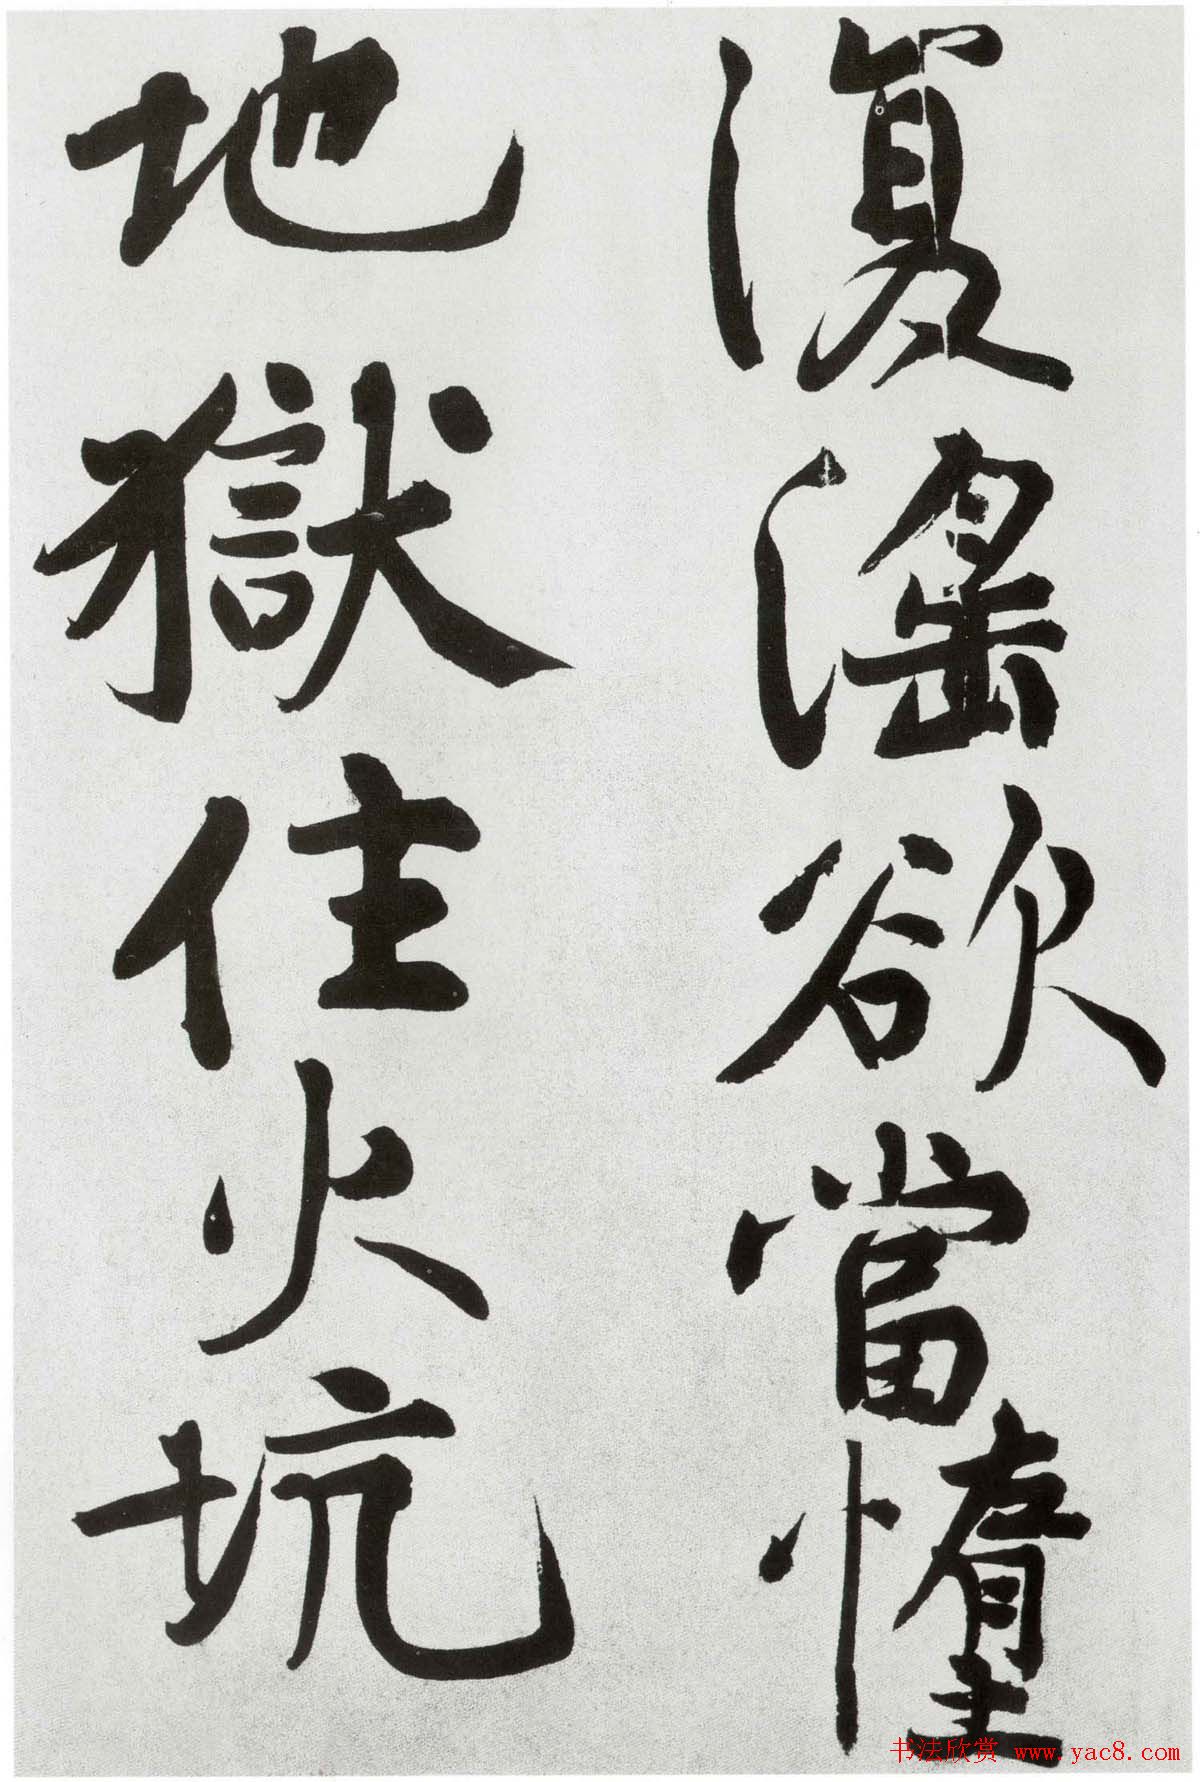 復滛欲當墮
地獄住火坑
书法欣赏 www.yac8.com